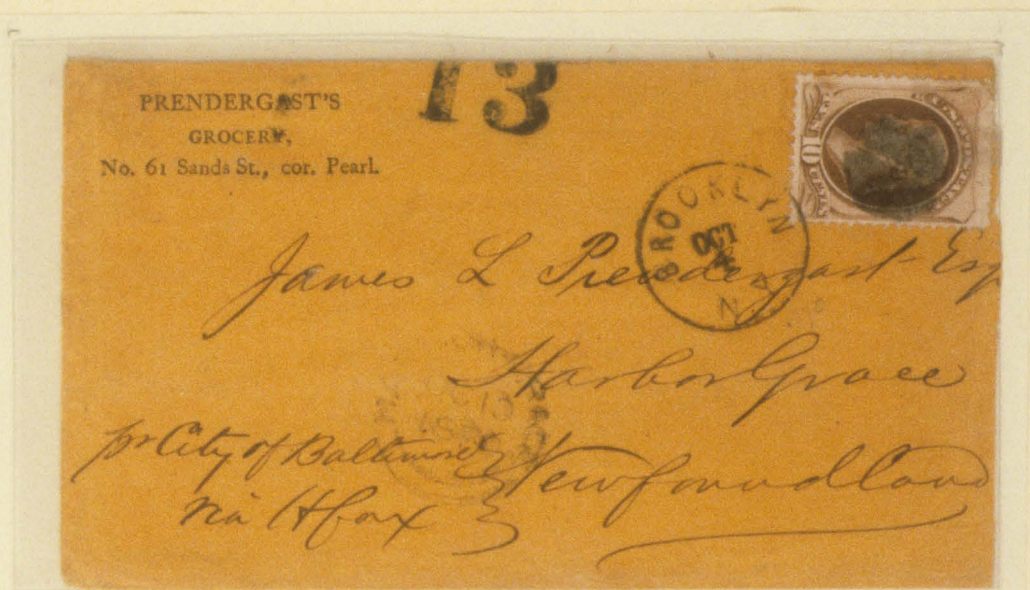 13
PRENDERGAST'S
GROCERY,
No. 61 Sands St., cor. Pearl.
10
BROOKLYN
OCT
4
N.Y.
James L Prendergast Esq
Harbor Grace
Newfoundland
pr City of Baltimore
via Hfax